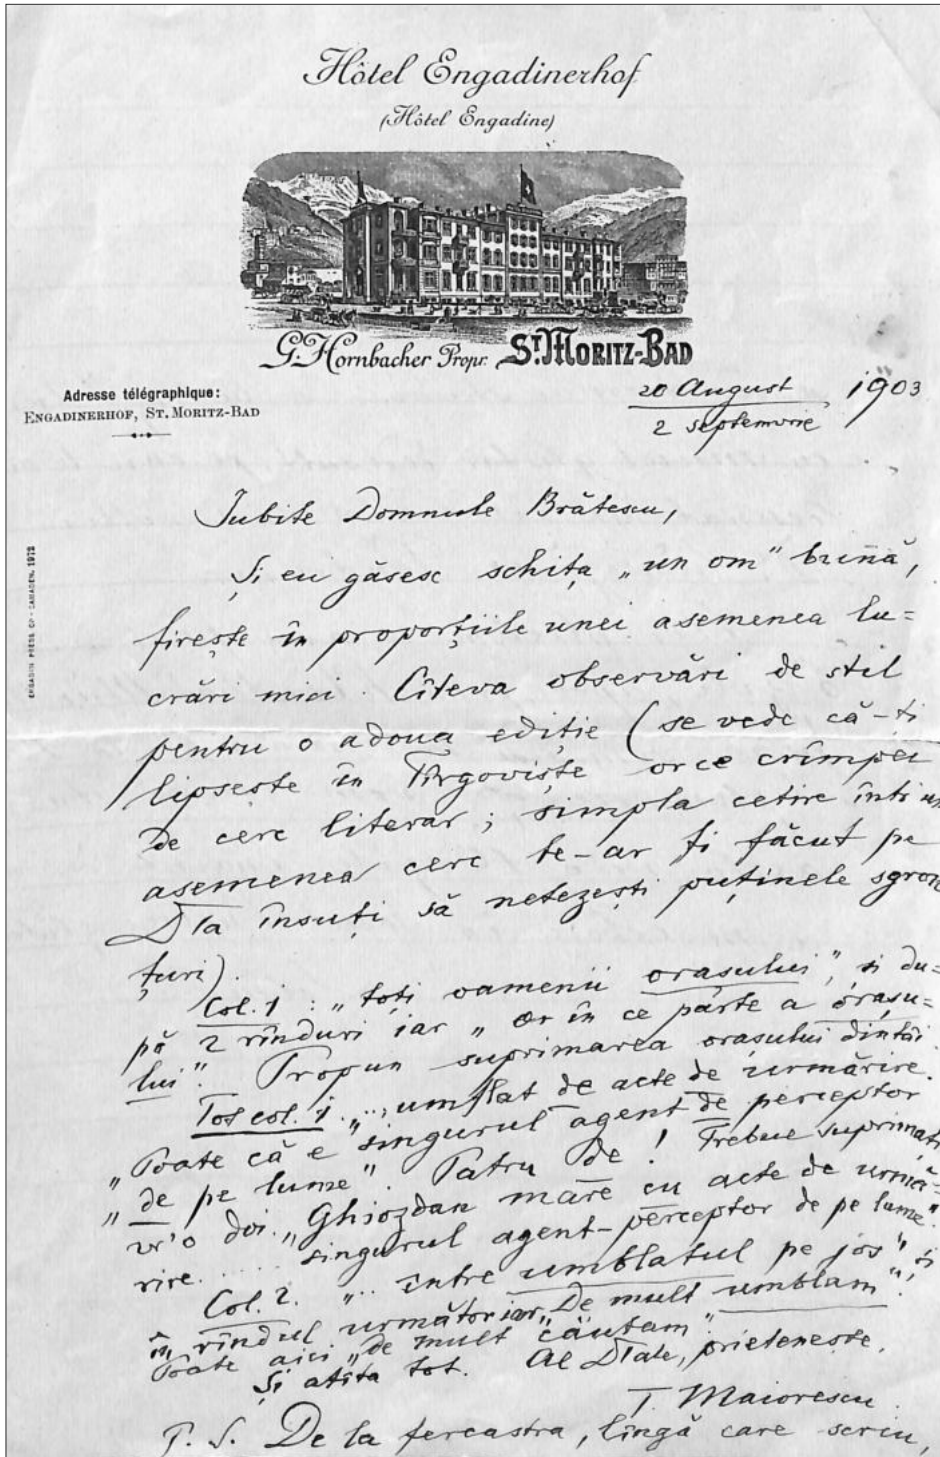 Hôtel Engadinerhof
(Hôtel Engadine)
G. Hornbacher Propr. ST. MORITZ-BAD
Adresse télégraphique:
ENGADINERHOF, ST. MORITZ-BAD
20 August 1903
2 septemvrie
ENGADIN PRESS CO - SAMADEN. 1972
Iubite Domnule Brătescu,
Și eu găsesc schița „un om" bună,
firește în proporțiile unei asemenea lu=
crări mici. Cîteva observări de stil
pentru o adoua ediție (se vede că-ți
lipsește în Tîrgoviște orce crîmpei
de cerc literar; simpla cetire într'un
asemenea cerc te-ar fi făcut pe
DTa însuți să netezești puținele sgron
țuri).
Col. 1: „toți oamenii orașului", și du=
pă 2 rînduri iar „or în ce parte a orașu=
lui". Propun suprimarea orașului dintâi.
Tot col. 1 „... umflat de acte de urmărire.
„Poate că e singurul agent de perceptor
„de pe lume". Patru de! Trebue suprimați
vr'o doi. „Ghiozdan mare cu acte de urmă=
rire..... singurul agent-perceptor de pe lume".
Col. 2. „.. între umblatul pe jos" și
în rîndul următor iar „De mult umblam".
Poate aici „de mult căutam".
Și atîta tot. Al DTale, prietenește,
T. Maiorescu.
P. S. De la fereastra, lîngă care scriu,